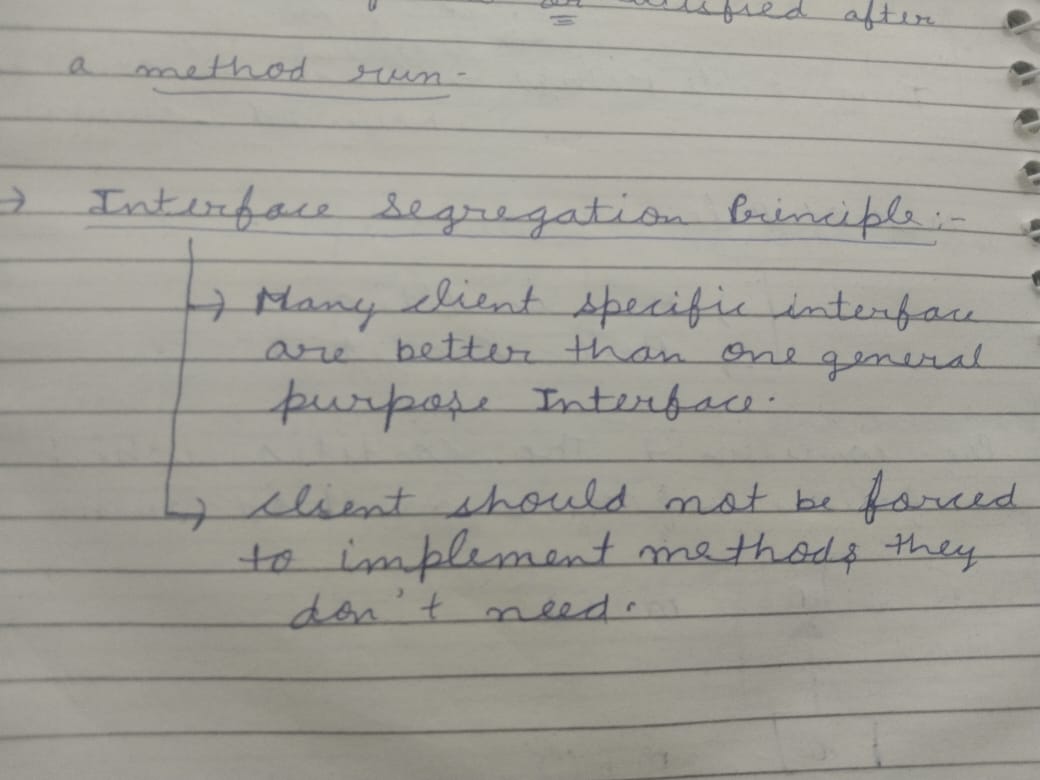 satisfied after
a method run-
→ Interface Segregation Principle:-
→ Many client specific interface
are better than one general
purpose Interface.
→ client should not be forced
to implement methods they
don't need.